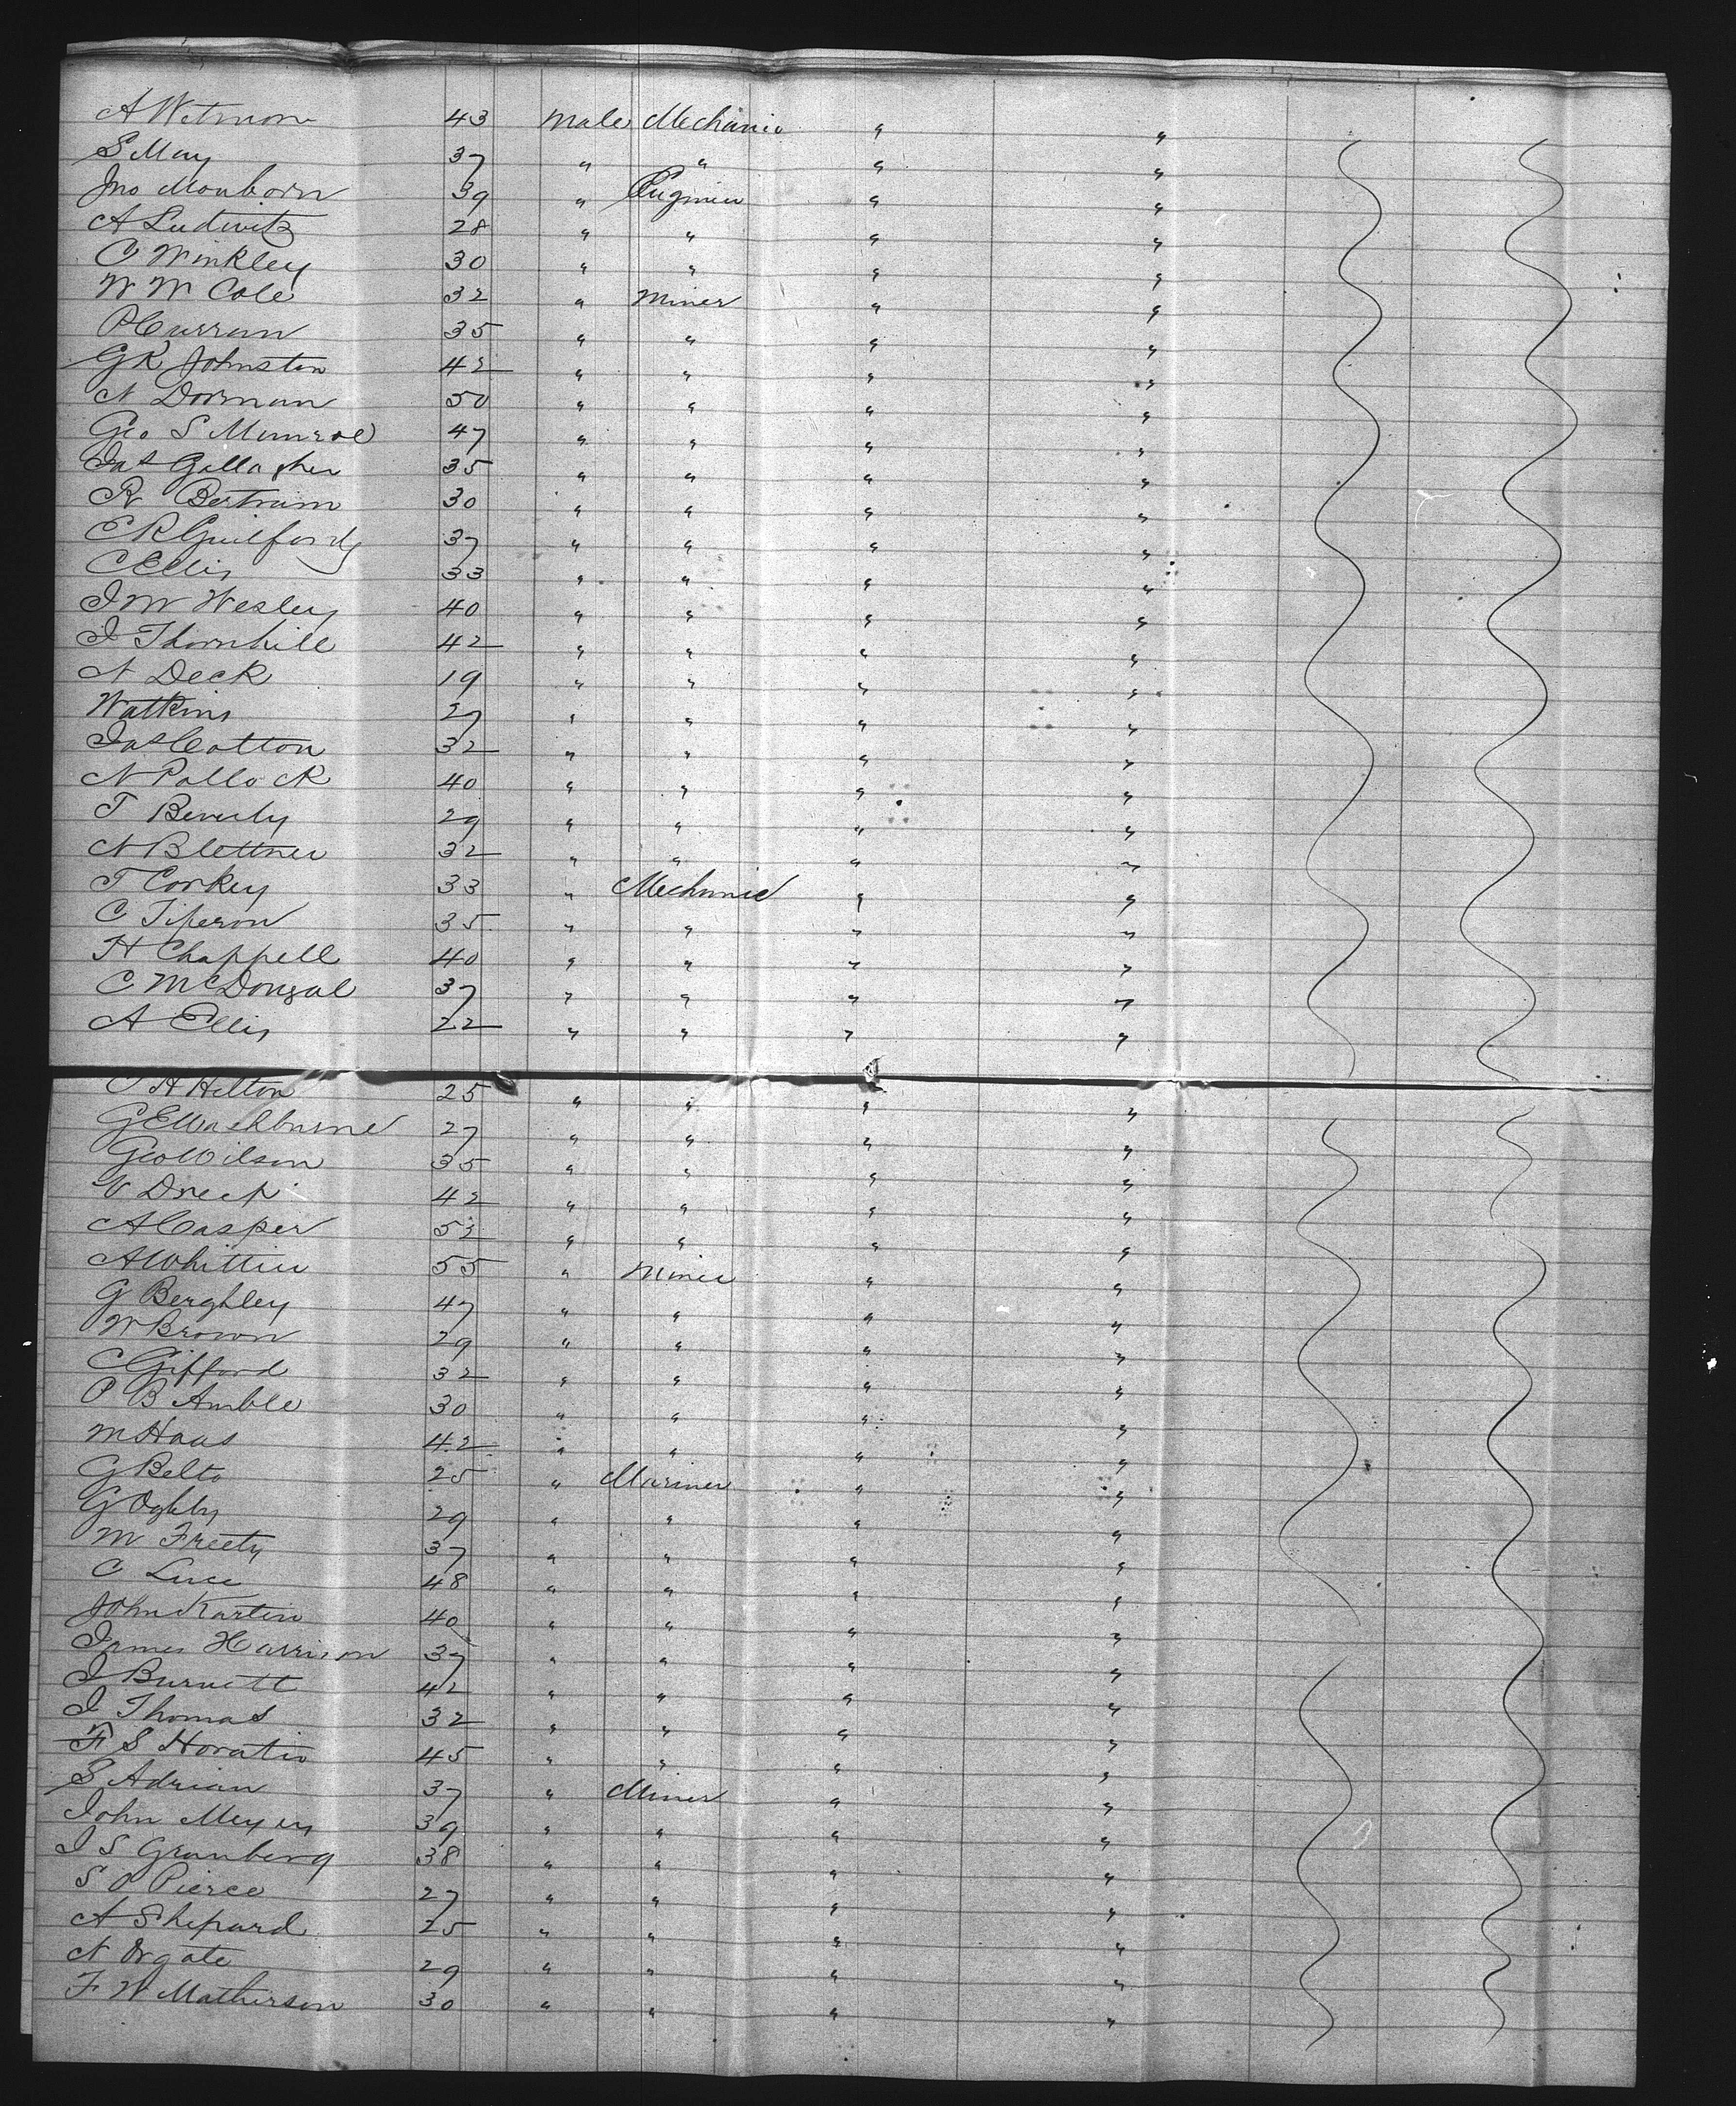 A Wetmore 43 Male Mechanic " "
S May 37 " " " "
Jno Monborn 39 " Engineer " "
A Ludwitz 28 " " " "
C Winkley 30 " " " "
W W Cole 32 " Miner " "
P Curran 35 " " " "
G K Johnston 42 " " " "
N Dorman 50 " " " "
Geo S Munroe 47 " " " "
Jas Gallagher 35 " " " "
R Bertram 30 " " " "
E R Guilford 37 " " " "
C Ellis 33 " " " "
J W Wesley 40 " " " "
J Thornhill 42 " " " "
N Deck 19 " " " "
Watkins 27 " " " "
Jas Cotton 32 " " " "
N Pollock 40 " " " "
T Beverly 29 " " " "
N Blettner 32 " " " "
T Corkey 33 " Mechanic " "
C Tiperon 35 " " " "
H Chappell 40 " " " "
C McDougal 37 " " " "
A Ellis 22 " " " "
H Helton 25 " " " "
G E Washburne 27 " " " "
Geo Wilson 35 " " " "
V 42 " " " "
A Casper 52 " " " "
A Whittier 55 " Miner " "
G Berghley 47 " " " "
W Brown 29 " " " "
C Gifford 32 " " " "
P B Amble 30 " " " "
M Haas 42 " " " "
G Belto 25 " Mariner " "
G Ogleby 29 " " " "
M Freety 37 " " " "
C Luce 48 " " " "
John Karten 40 " " " "
James Harrison 37 " " " "
J Burnett 42 " " " "
J Thomas 32 " " " "
F S Horatio 45 " " " "
S Adrian 37 " Miner " "
John Meyers 39 " " " "
J S Granberg 38 " " " "
S P Pierce 27 " " " "
A Shepard 25 " " " "
N Orgate 29 " " " "
F W Matherson 30 " " " "